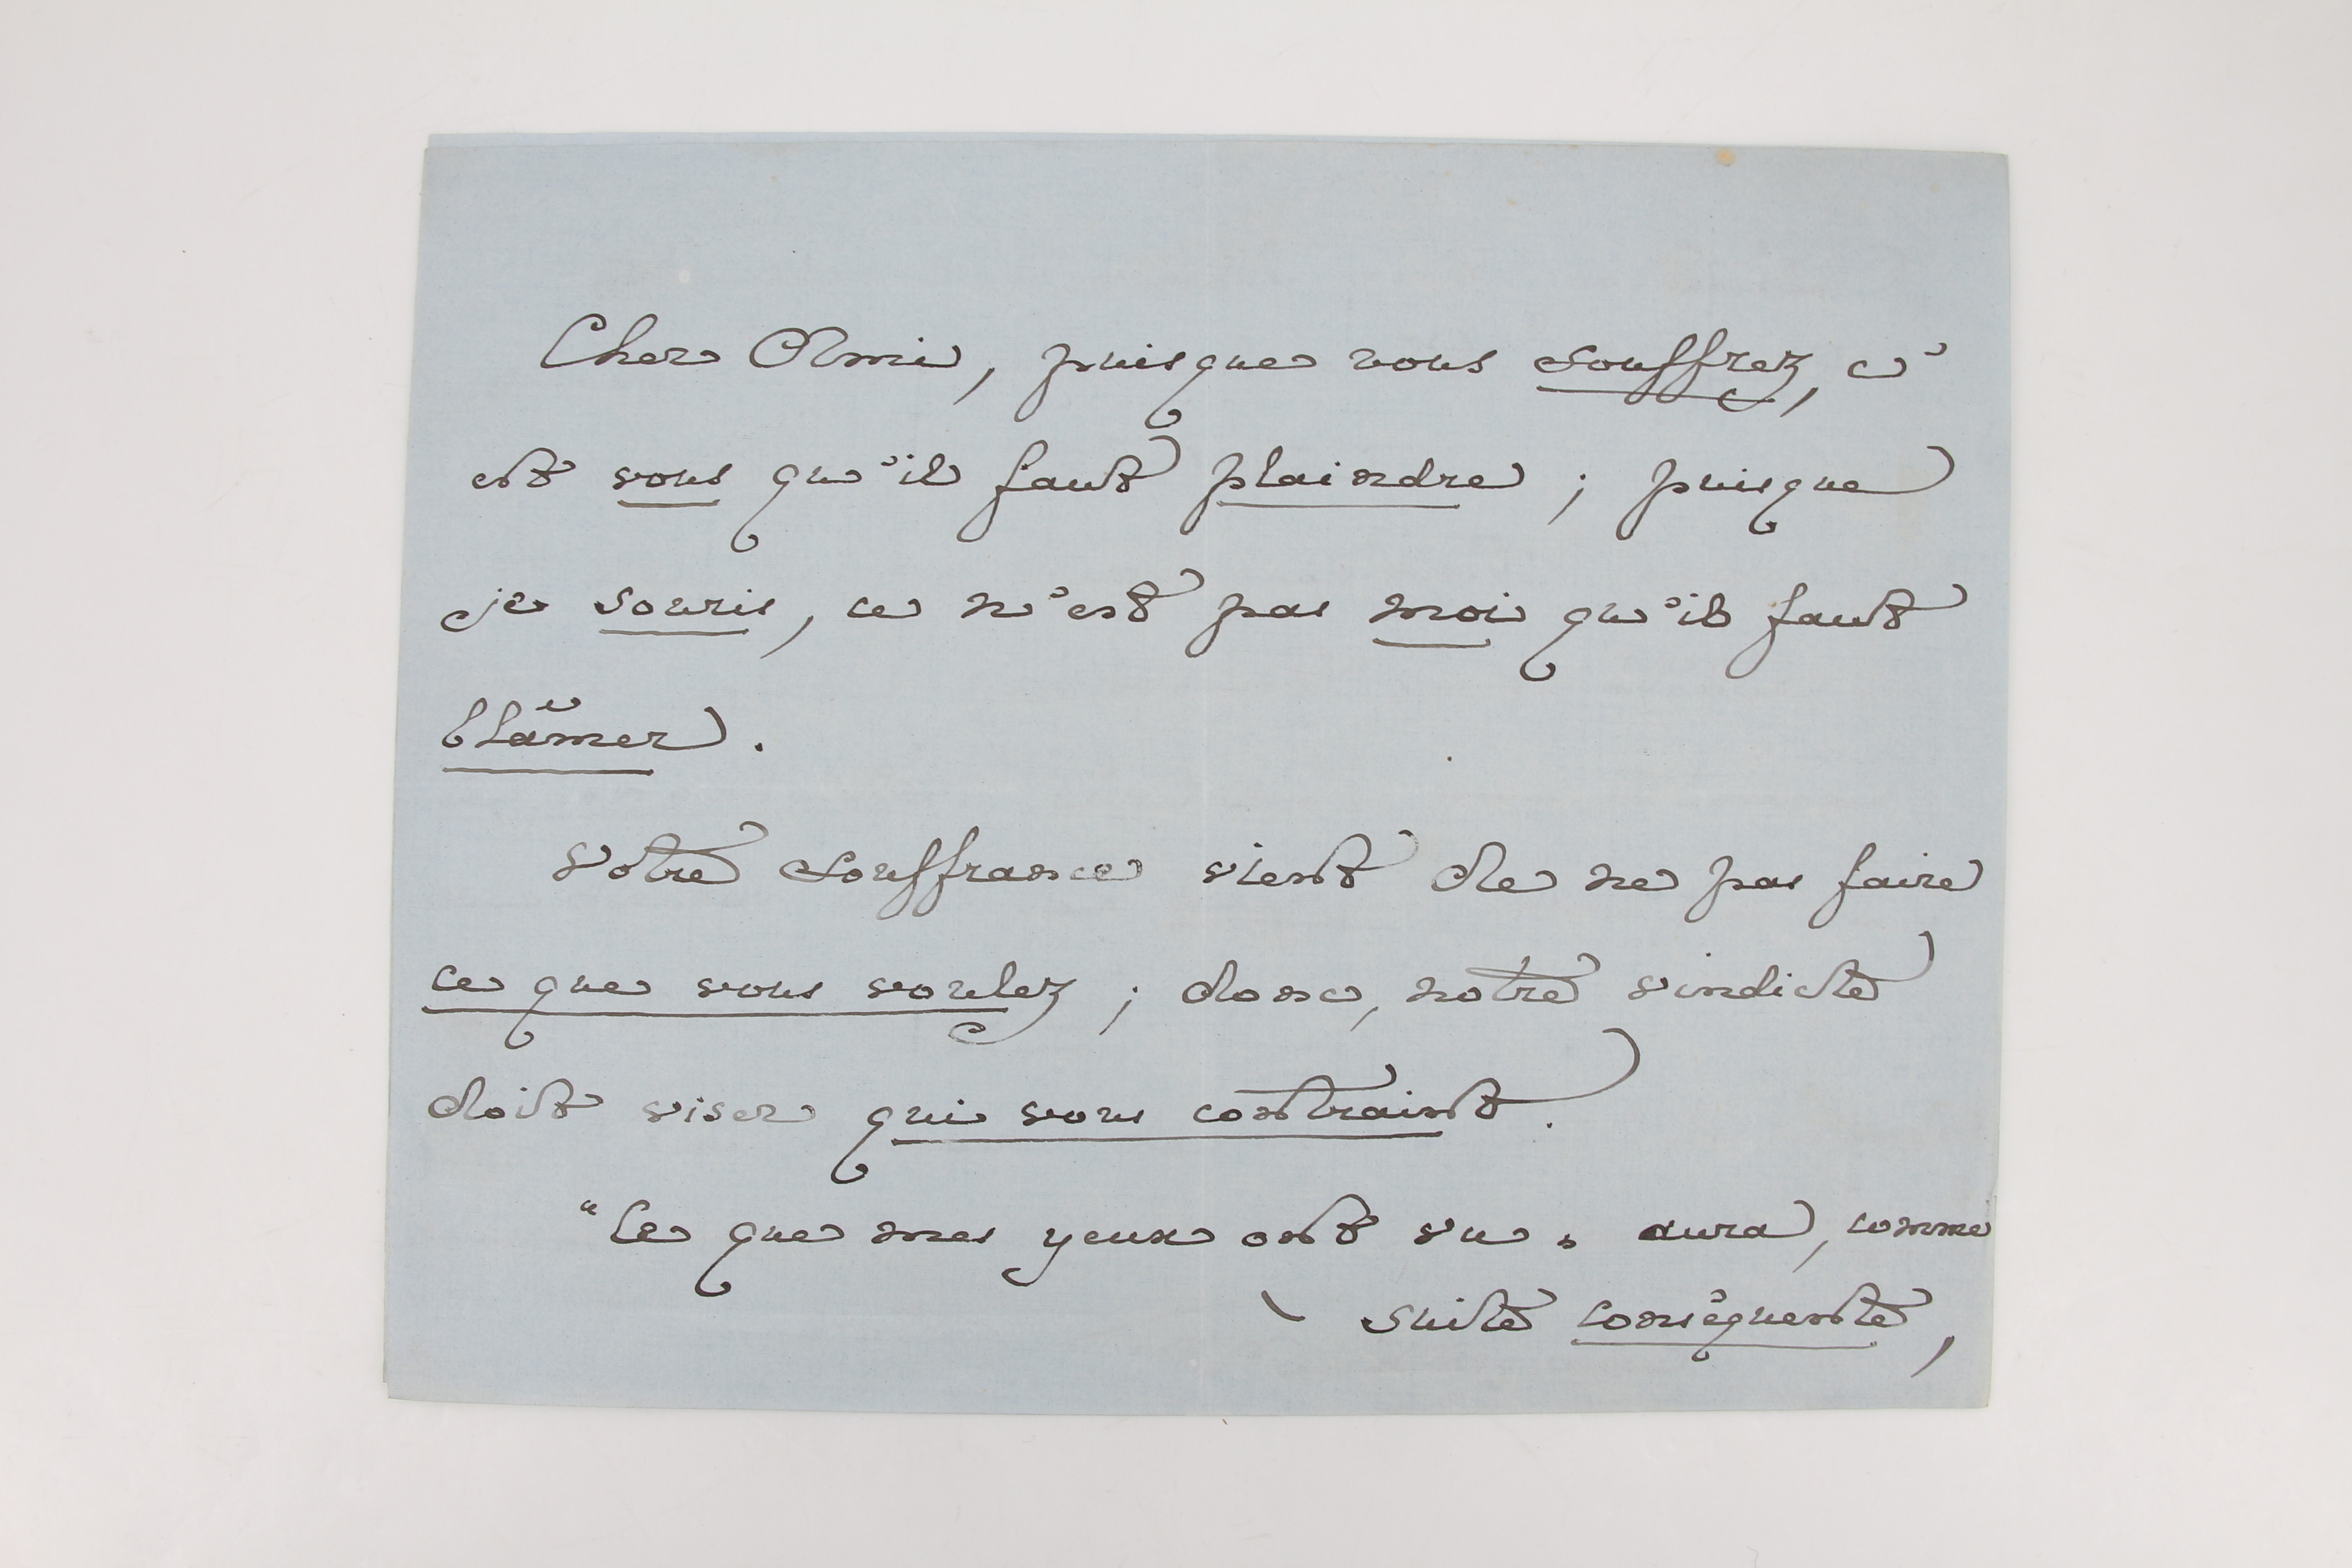 Cher Ami, puisque vous souffrez, c'
est vous qu'il faut plaindre ; puisque
je souris, ce n'est pas moi qu'il faut
blâmer.
Votre souffrance vient de ne pas faire
ce que vous voulez ; donc, notre vindicte
doit viser qui vous contraint.
"Ce que mes yeux ont vu" aura, comme
suite conséquente,